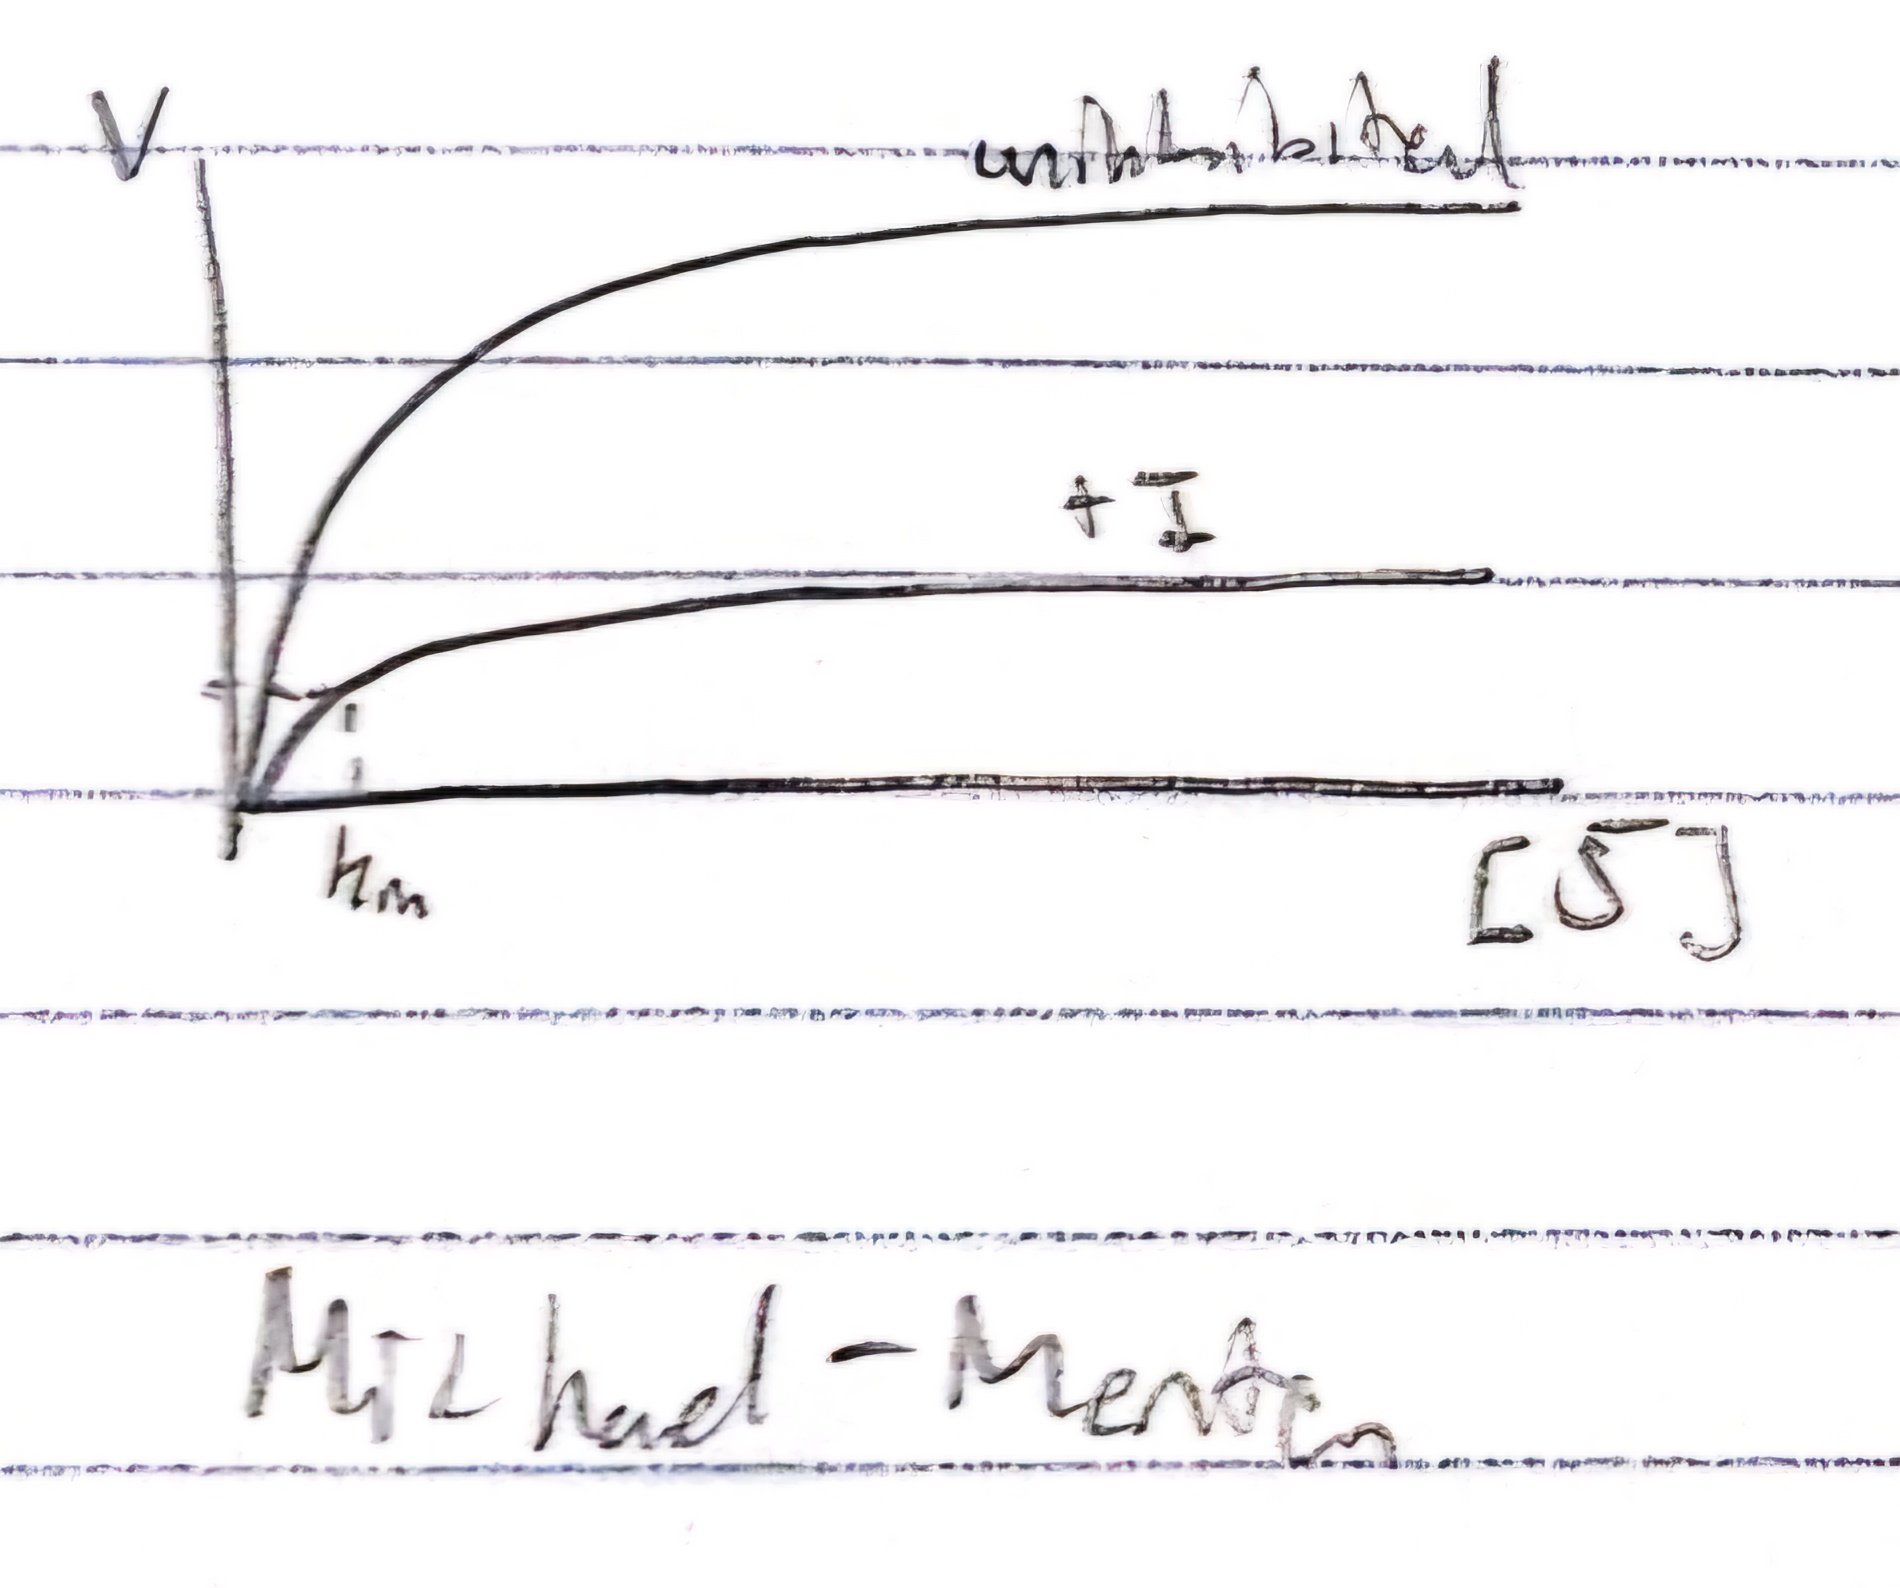 V
uninhibited
+ I
Km
[S]
Michael - Menten